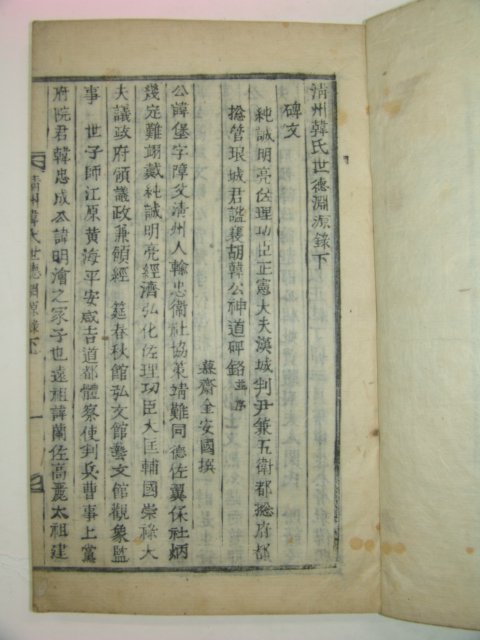 清州韓氏世德淵源錄下
碑文
純誠明亮佐理功臣正憲大夫漢城判尹兼五衛都摠府都
摠管琅城君謚襄胡韓公神道碑銘並序
慕齋金安國撰
公諱堡字障之清州人輸忠衛社協策靖難同德佐翼保社炳
幾定難翊戴純誠明亮經濟弘化佐理功臣大匡輔國崇祿大
夫議政府領議政兼領經 筵春秋館弘文館藝文館觀象監
事 世子師江原黃海平安咸吉道都體察使判兵曹事上黨
府院君韓忠成公諱明澮之冢子也遠祖諱蘭佐高麗太祖建
清州韓氏世德淵源錄下 一